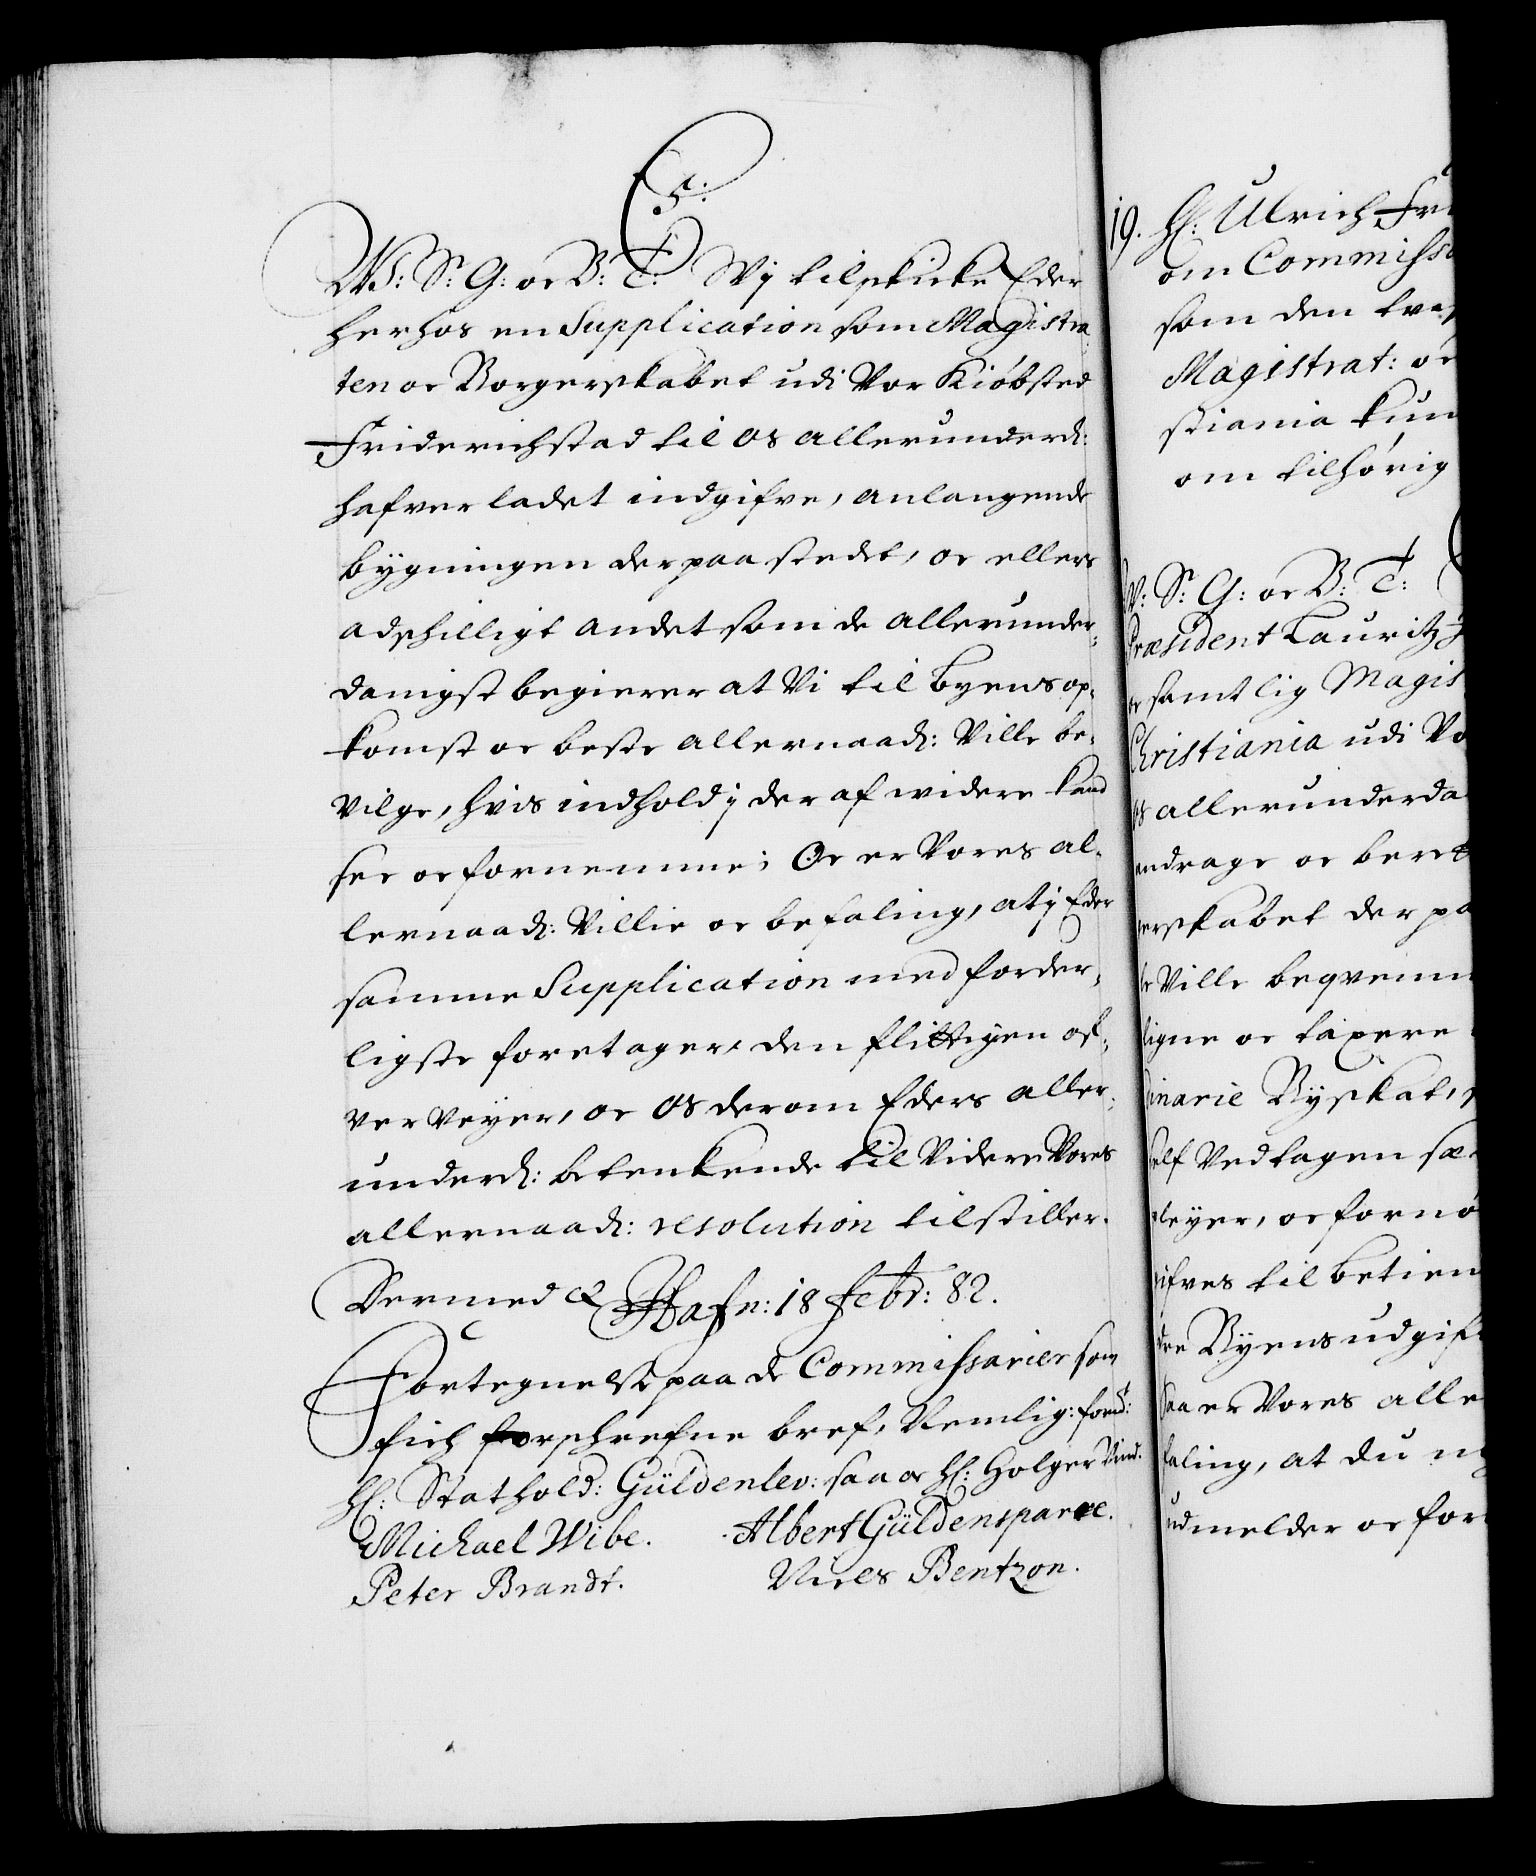 C 5.
W: S: G: oc B: T: Wj tilskicke Eder
herhos en Supplication som Magistra-
ten oc Borgerskabet udi Vor Kiøbsted
Friderichstad til os allerunderd:
hafver ladet indgifve, anlangende
bygningen der paa stedet, oc ellers
adschilligt andet som de allerunder-
danigst begierer at Vi til byens op-
komst oc beste allernaad: Ville be-
vilge, hvis indhold j der af widere kand
see oc fornemme; Oc er Vores al-
lernaad: Villie oc befaling, at j Eder
samme Supplication med forder-
ligste foretager, den flittigen of-
ver veyer, oc os derom Eders aller-
underd: betenkende til Videre Vores
allernaad: resolution tilstiller.
Dermed &c Hafn: 18 Febr: 82.
Fortegnelse paa de Commissarier som
fich forschrefne bref, Nemlig:
H: Stathold: Güldenlev: saa oc H: Holger Vind.
Michael Wibe. Albert Güldensparre.
Peter Brandt. Niels Bentzon.
19. H: Ulrich Fri
om Commisso
som den
Magistrat: oc
stiania kun
om tilhørig
W: S: G: oc B: T:
Præsident Lauritz
oc samtlig Magis
Christiania udi Vo
os allerunderda
andrage oc beret
erskabet der pa
Ville beqvem
ligne oc taxere
dinarie Byskat,
self Vedtagen
pleyer, oc fornø
gifves til betien
Byens udgif
Saa er Vores alle
faling, at du
udmelder oc for